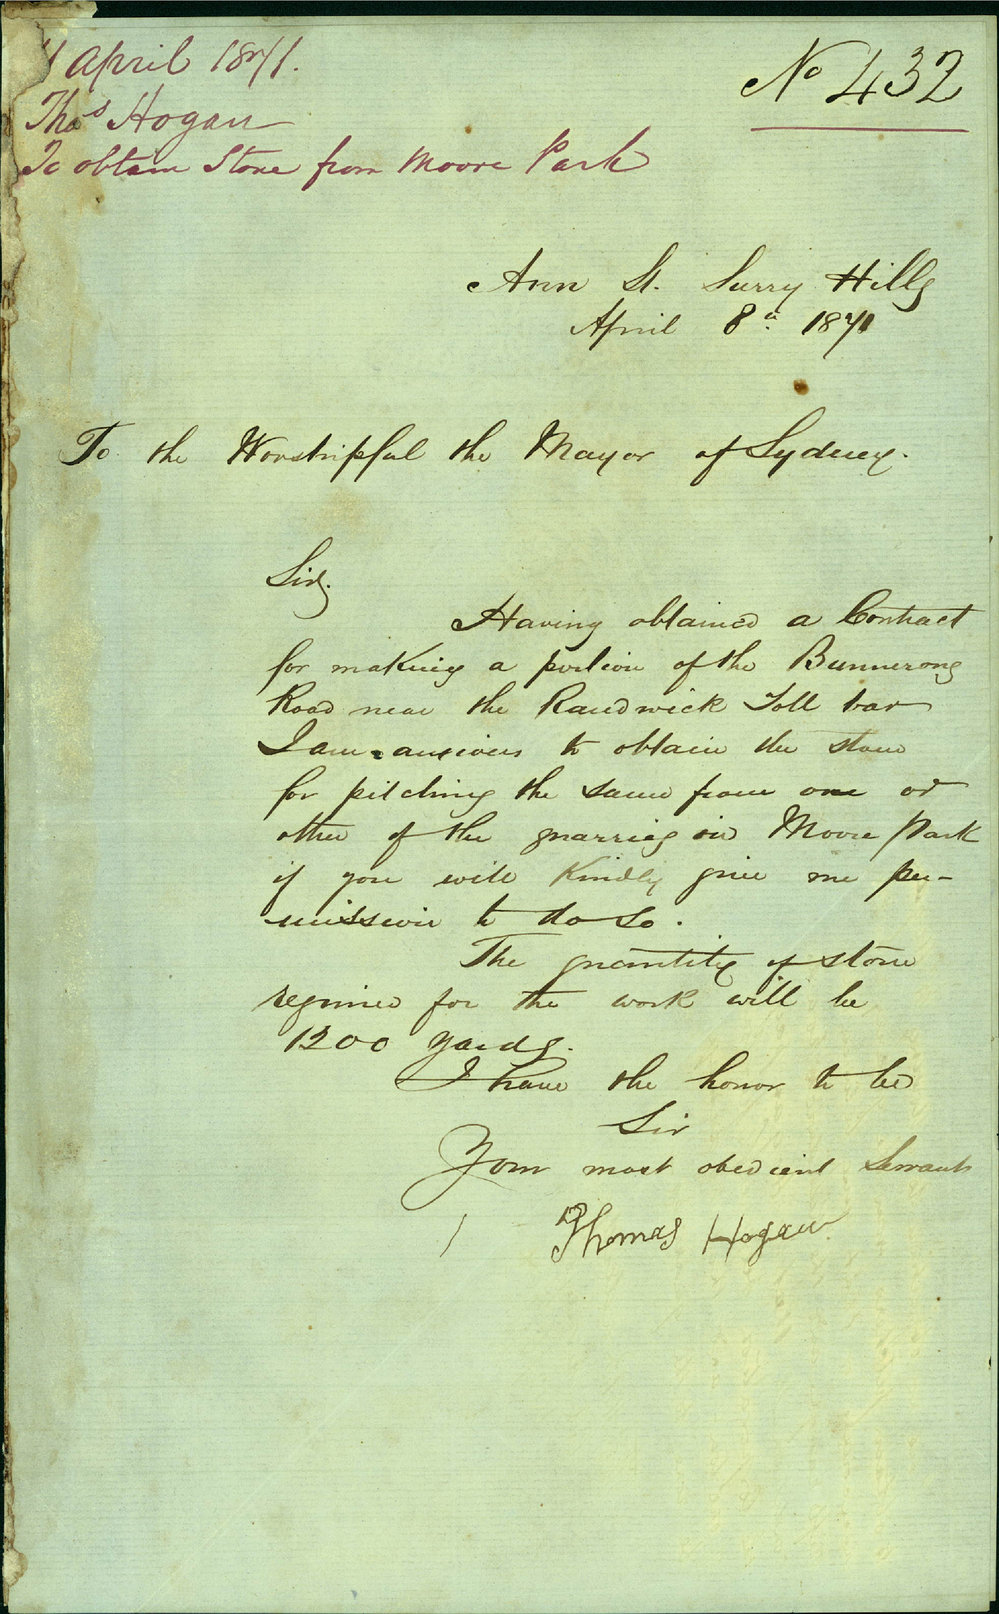 11 April 1871.
No 432
Thos Hogan
To obtain Stone from Moore Park
Ann St. Surry Hills
April 8th 1871
To the Worshipful the Mayor of Sydney.
Sir,
Having obtained a Contract
for making a portion of the Bunnerong
Road near the Randwick Toll bar
I am anxious to obtain the stone
for pitching the same from one or
other of the quarries in Moore Park
if you will Kindly give me per-
mission to do so.
The quantity of stone
required for the work will be
1200 yards.
I have the honor to be
Sir
Your most obedient Servant
Thomas Hogan